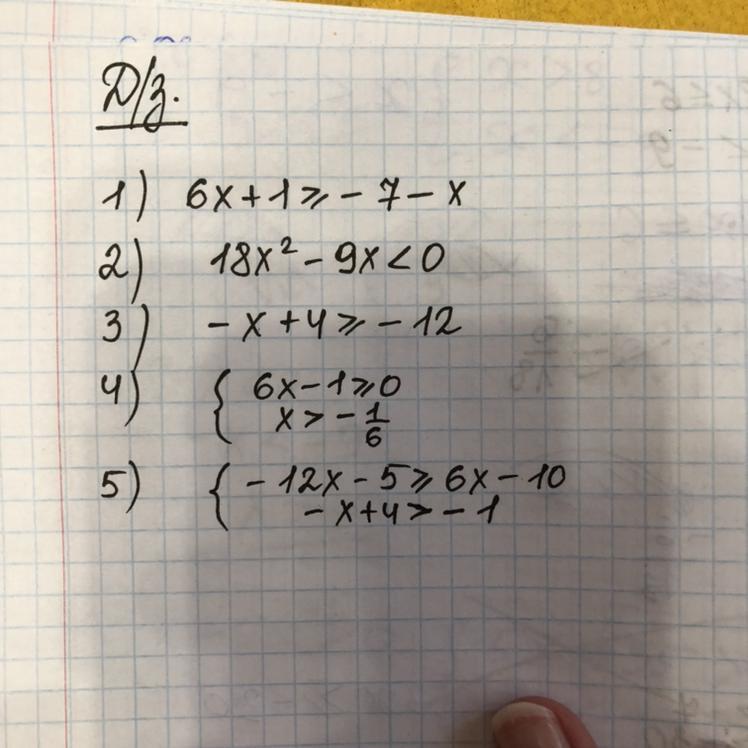 Д/з.
1) 6x+1⩾-7-x
2) 18x²-9x<0
3) -x+4⩾-12
4) { 6x-1⩾0
x>-1/6
5) { -12x-5⩾6x-10
-x+4>-1